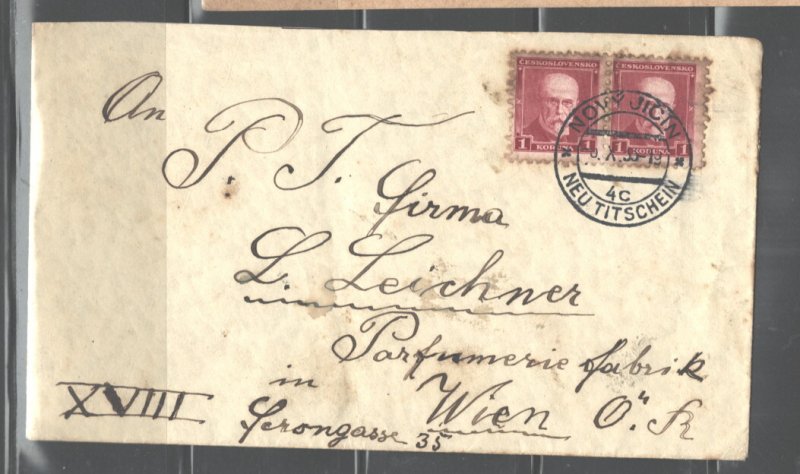 ČESKOSLOVENSKO ČESKOSLOVENSKO
1 KORUNA 1 1 KORUNA 1
NOVÝ JIČÍN
X. 33-19
4c
NEU TITSCHEIN
An
P. T. Firma
L. Leichner
Parfumerie fabrik
in Wien Ö.
XVIII
Gerongasse 35